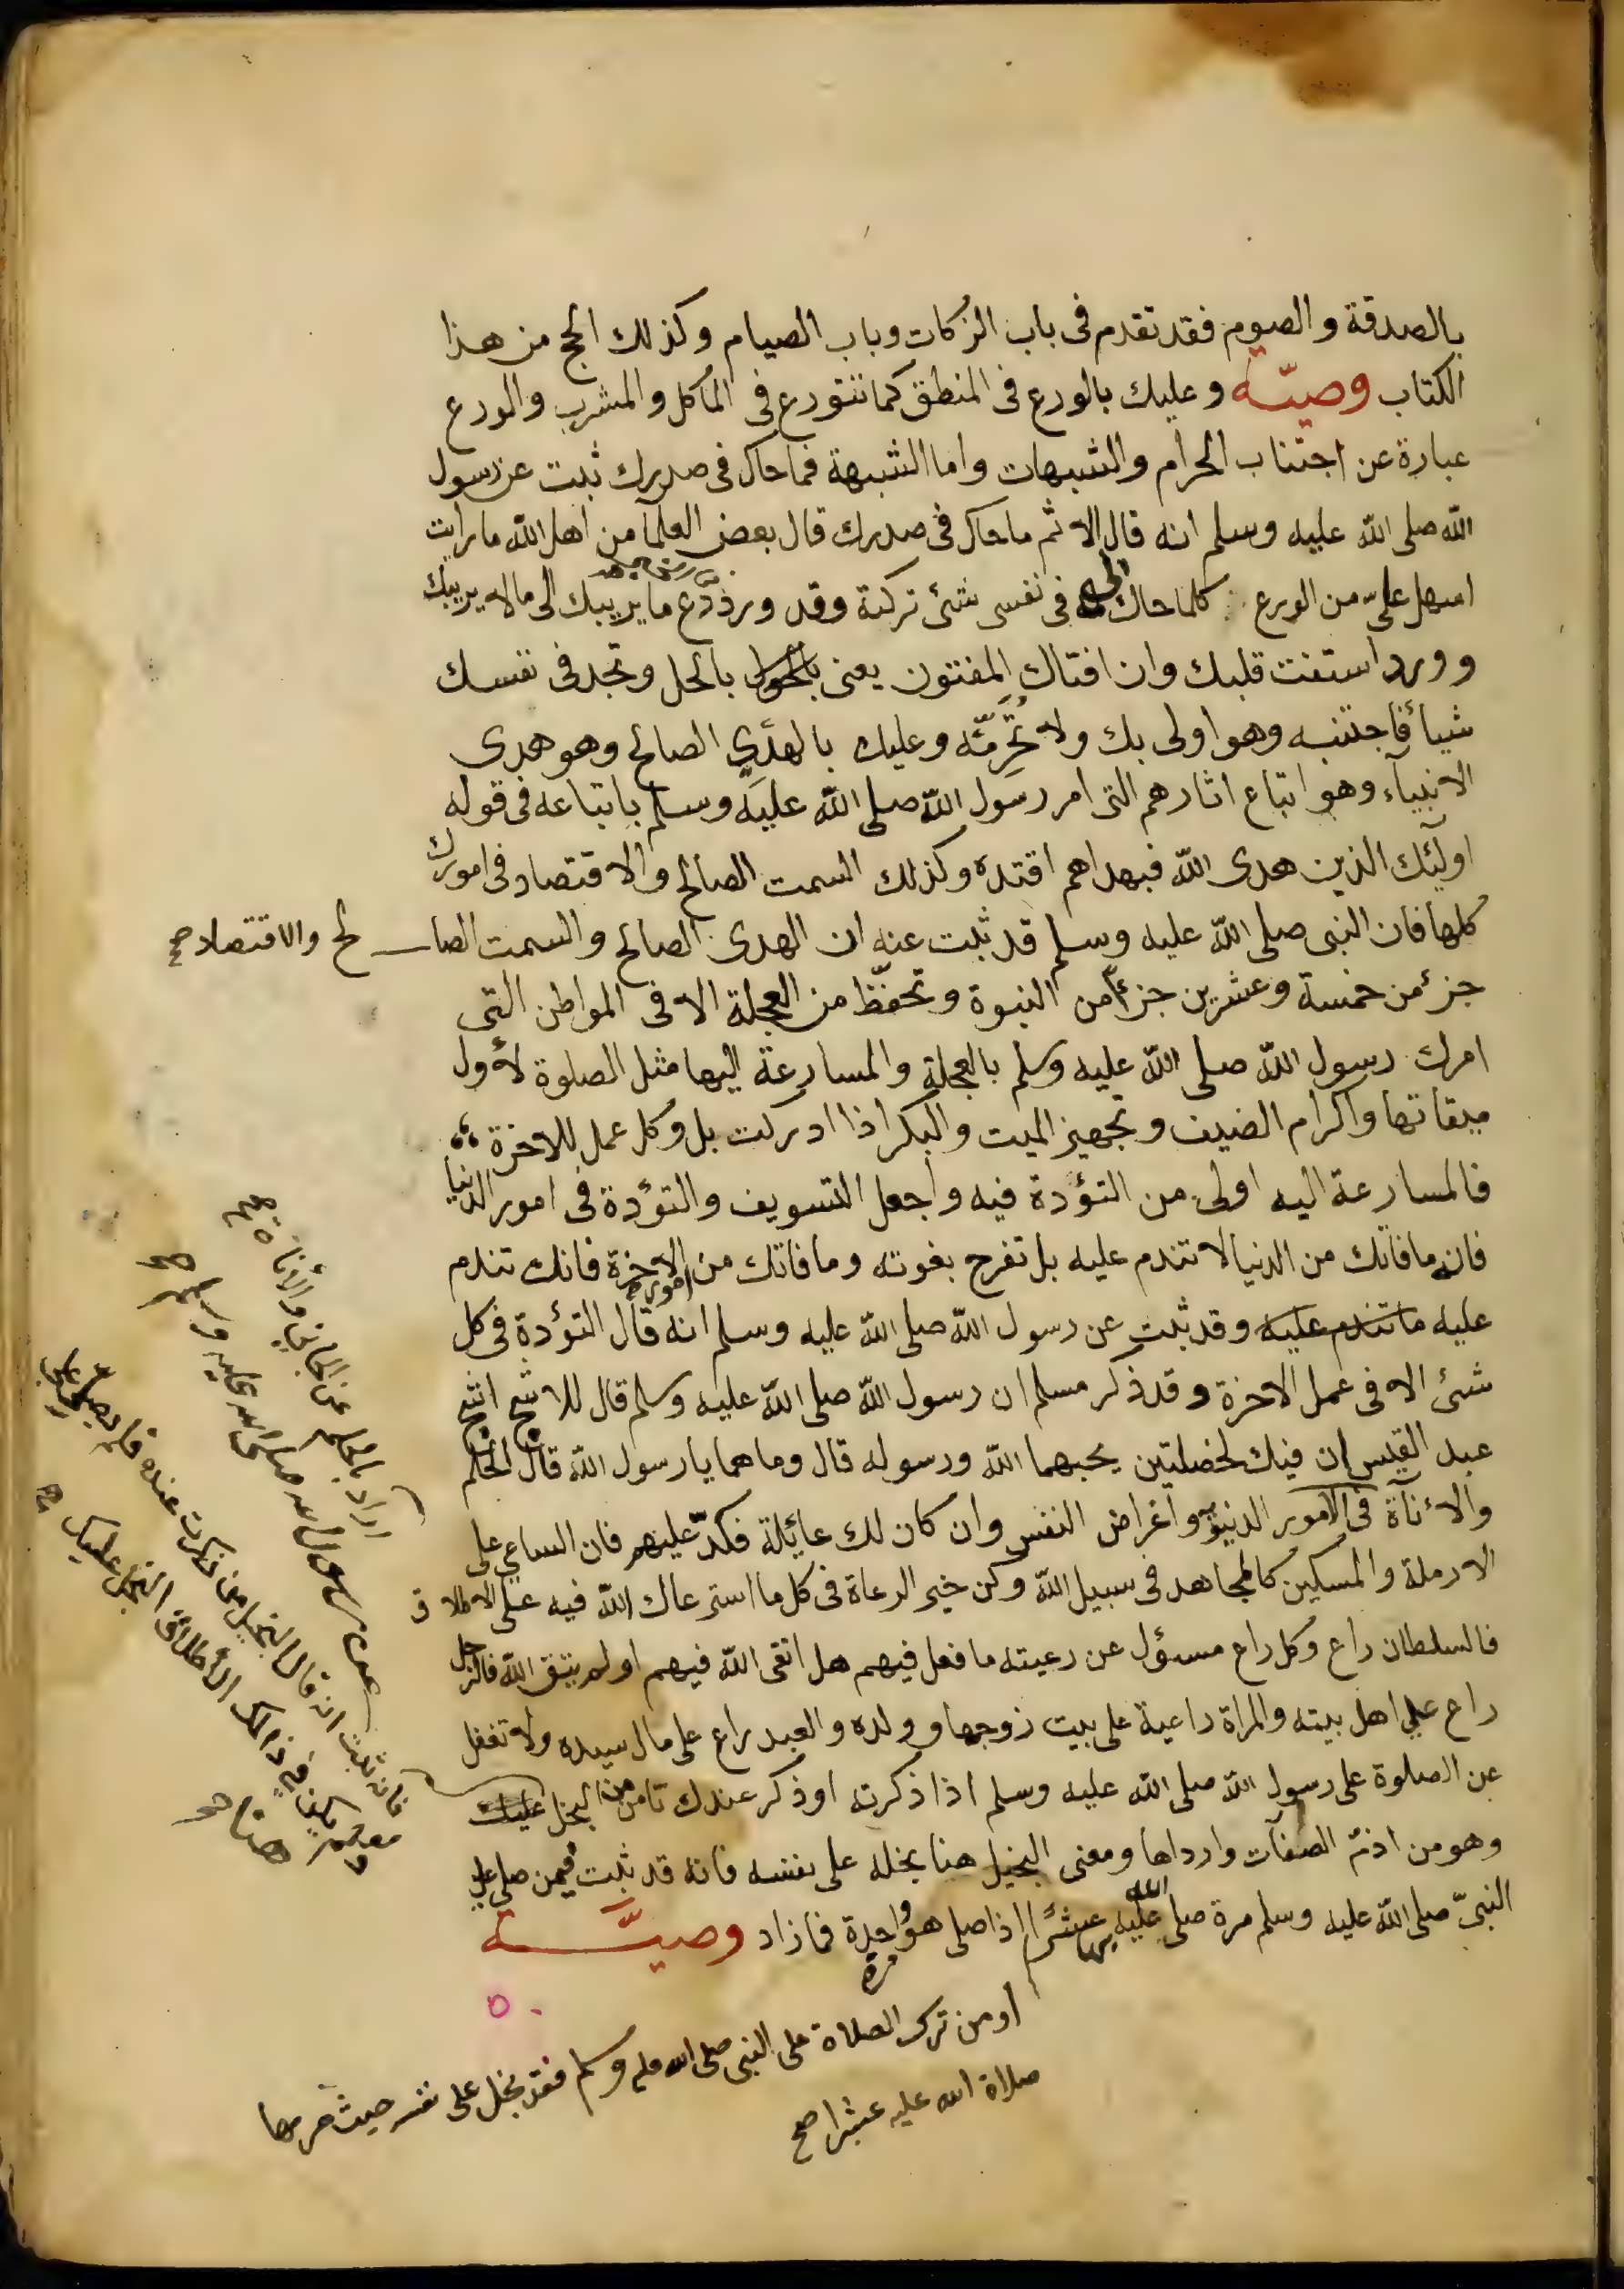 بالصدقة والصوم فقد تقدم فى باب الزكات وباب الصيام وكذلك الحج من هذا
الكتاب وصيّة وعليك بالورع فى المنطق كما تتورع فى المأكل والمشرب والورع
عبارة عن اجتناب الحرام والشبهات واما الشبهة فما حاك فى صدرك ثبت عن رسول
الله صلى الله عليه وسلم انه قال الاثم ما حاك فى صدرك قال بعض العلمآ من اهل الله ما رايت
اسهل علىّ من الورع كلما حاك فى نفسى شئ تركته وقد ورد دع ما يريبك الى ما لا يريبك
وورد استفت قلبك وان افتاك المفتون يعنى بالحل وتجد فى نفسك
شيأ فاجتنبه وهو اولى بك ولا تُحَرِّمْه وعليك بالهدى الصالح وهو هدى
الانبيآء وهو اتباع اثارهم التى امر رسول الله صلى الله عليه وسلم باتباعه فى قوله
اولئك الذين هدى الله فبهداهم اقتده وكذلك السمت الصالح والاقتصاد فى امورك
كلها فان النبى صلى الله عليه وسلم قد ثبت عنه ان الهدى الصالح والسمت الصالح والاقتصاد صح
جزء من خمسة وعشرين جزأ من النبوة وتحفّظ من العجلة الا فى المواطن التى
امرك رسول الله صلى الله عليه وسلم بالعجلة والمسارعة اليها مثل الصلوة لأول
ميقاتها واكرام الضيف وتجهيز الميت والبكر اذا ادركت بل وكل عمل للاخرة
فالمسارعة اليه اولى من التؤدة فيه واجعل التسويف والتؤدة فى امور الدنيا
فان ما فاتك من الدنيا لا تندم عليه بل تفرح بفوته وما فاتك من امور الاخرة فانك تندم
عليه ما تندم عليه وقد ثبت عن رسول الله صلى الله عليه وسلم انه قال التؤدة فى كل
شئ الا فى عمل الاخرة وقد ذكر مسلم ان رسول الله صلى الله عليه وسلم قال للاشج اشج
عبد القيس ان فيك لخصلتين يحبهما الله ورسوله قال وما هما يا رسول الله قال الحلم
والأناة فى الامور الدنيوية واغراض النفس وان كان لك عائلة فكدّ عليهم فان الساعي على
الارملة والمسكين كالمجاهد فى سبيل الله وكن خير الرعاة فى كل ما استرعاك الله فيه على الاطلاق
فالسلطان راع وكل راع مسؤل عن رعيته ما فعل فيهم هل اتقى الله فيهم او لم يتق الله فالرجل
راع على اهل بيته والمراة راعية على بيت زوجها وولده والعبد راع على مال سيده ولا تغفل
عن الصلوة على رسول الله صلى الله عليه وسلم اذا ذكرته او ذكر عندك تامن من البخل عليك
وهو من اذمّ الصفات وارداها ومعنى البخيل هنا بخله على نفسه فانه قد ثبت فيمن صلى على
النبىّ صلى الله عليه وسلم مرة صلى الله عليه بها عشرًا اذا صلى هو واحدة مرة فما زاد وصيّة
او من ترك الصلاة على النبى صلى الله عليه وسلم فقد بخل على نفسه حيث حرمها
صلاة الله عليه عشرا صح
اراد بالحلم عن الجانى والأناة صح
فانه ثبت انه قال البخيل من ذكرت عنده فلم يصل على